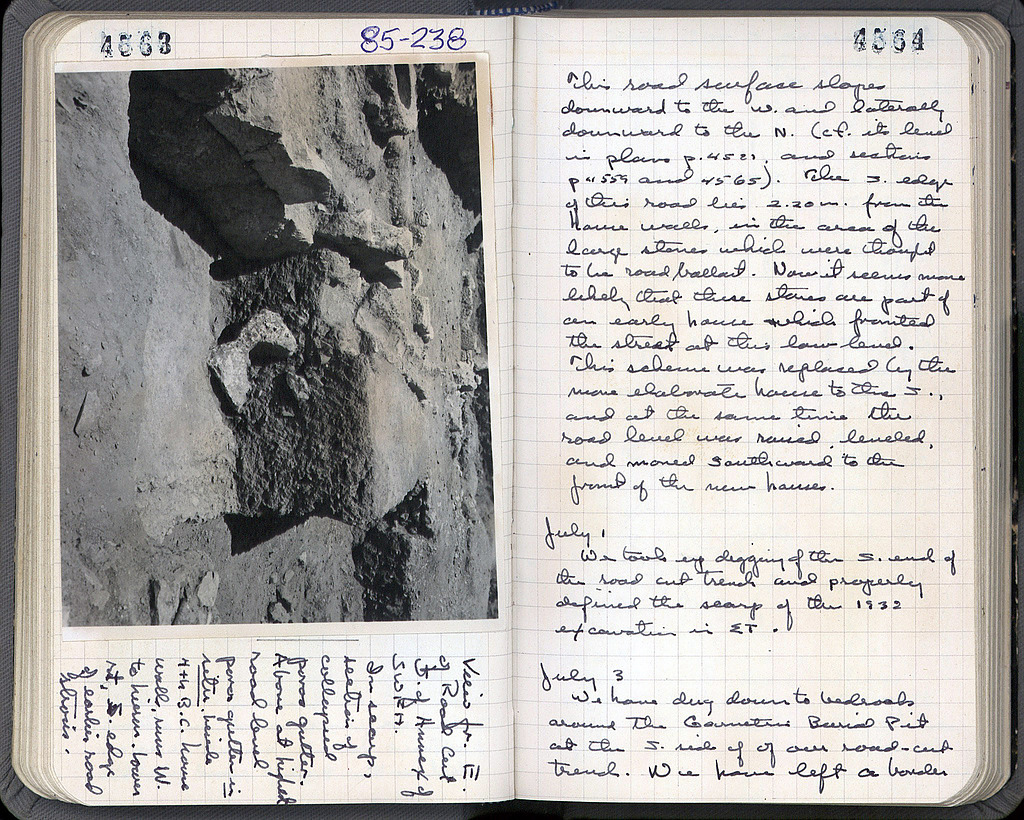 4563
85-238
View fr. E.
of Road Cut
J. of Annex of
S.W.R.H.
In scarp,
section of
collapsed
poros gutter.
Above at higher
road level
poros gutter in
situ, beside
4th B.C. house
wall runs W.
to horiz. Lower
rt., S. edge
of earlier road
4564
This road surface slopes
downward to the W. and laterally
downward to the N. (cf. its level
in plans p. 4521, and sections
p 4559 and 4565). The S. edge
of this road lies 2.20 m. from the
house walls, in the area of the
large stones which were thought
to be road ballast. Now it seems more
likely that these stones are part of
an early house which fronted
the street at this low level.
This scheme was replaced by the
more elaborate house to the S.,
and at the same time the
road level was raised, leveled,
and moved southward to the
front of the new houses.
July 1
We took up digging of the S. end of
the road cut trench and properly
defined the scarp of the 1932
excavation in ET.
July 3
We have dug down to bedrock
around the Geometric Burial Pit
at the S. side of our road-cut
trench. We have left a border